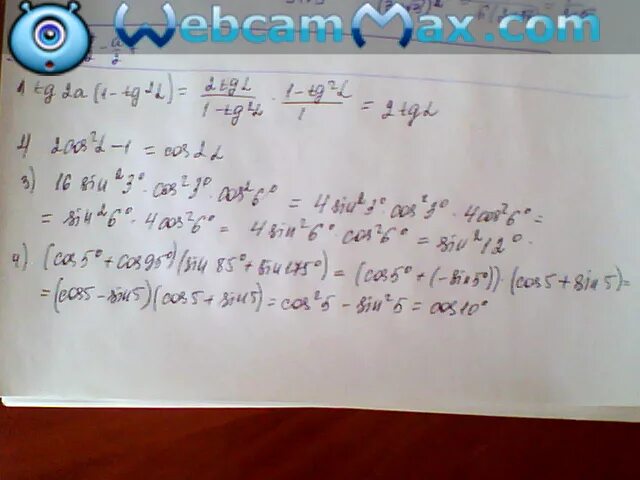 WebcamMax.com
1 tg 2a (1 - tg²α) = 2tgα / 1 - tg²α · 1 - tg²α / 1 = 2tgα
2) 2cos²α - 1 = cos2α
3) 16 sin²3° · cos²3° · cos²6° = 4sin²3° · cos²3° · 4cos²6° =
= sin²6° · 4cos²6° = 4sin²6° · cos²6° = sin²12°.
4) (cos5° + cos95°)(sin85° + sin175°) = (cos5° + (-sin5°)) · (cos5 + sin5) =
= (cos5 - sin5)(cos5 + sin5) = cos²5 - sin²5 = cos10°